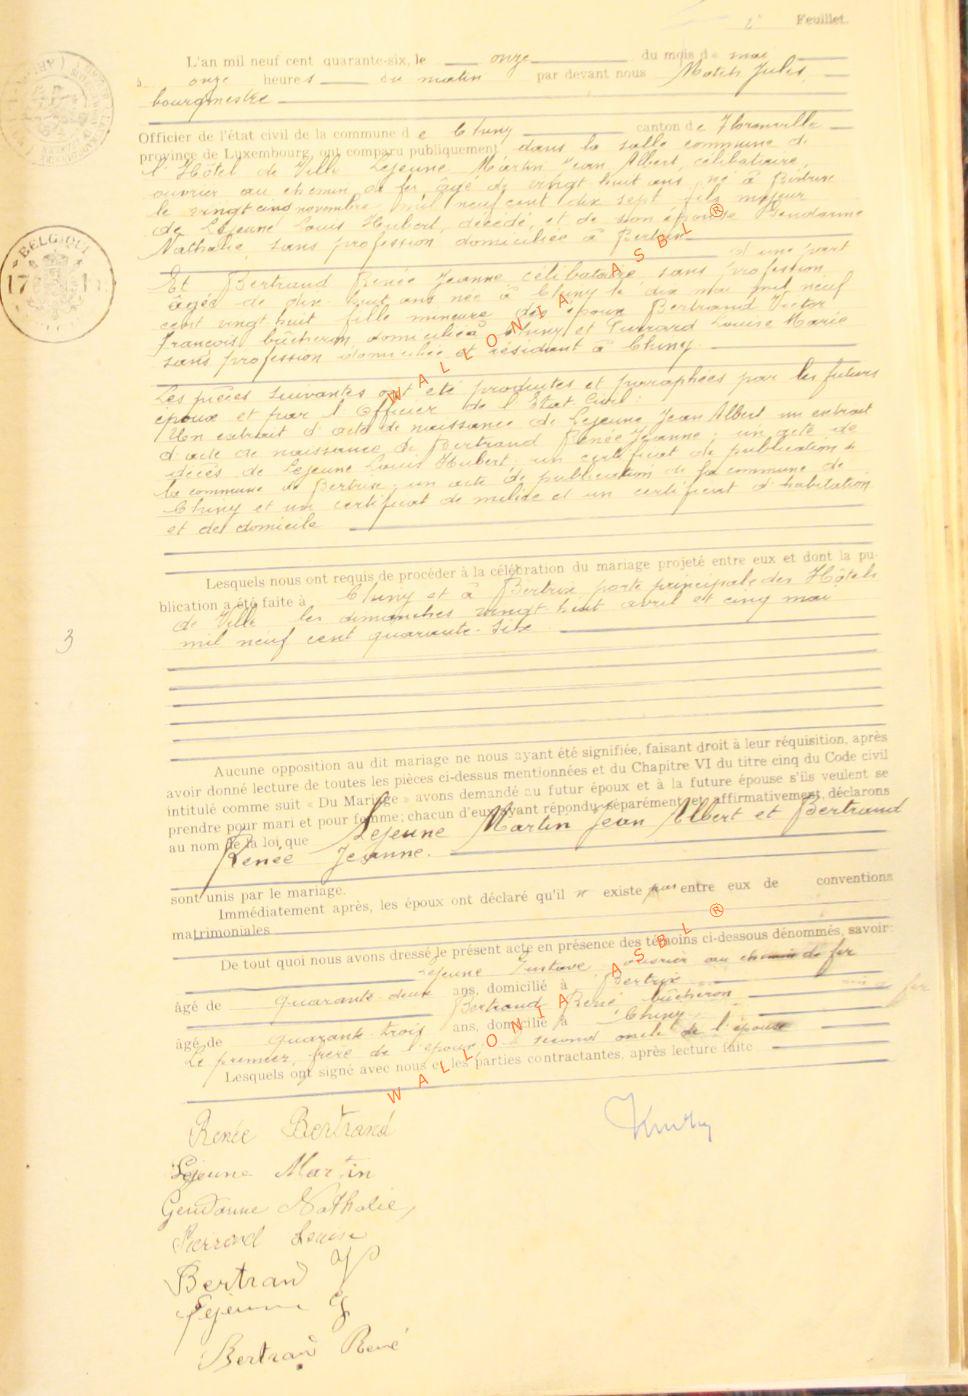 2e Feuillet.
L'an mil neuf cent quarante-six, le onze du mois de mai
à onze heures du matin par devant nous Mathis Jules,
bourgmestre
Officier de l'état civil de la commune de Chiny canton de Florenville
province de Luxembourg, ont comparu publiquement, dans la salle commune de
l'Hôtel de Ville Lejeune Martin Jean Albert, célibataire,
ouvrier au chemin de fer, âgé de vingt huit ans, né à Bertrix
le vingt cinq novembre mil neuf cent dix sept fils majeur
de Lejeune Louis Hubert, décédé, et de son épouse Gendarme
Nathalie, sans profession domiciliée à Bertrix d'une part
Et Bertrand Renée Jeanne célibataire, sans profession
âgée de dix-huit ans née à Chiny le dix mai mil neuf
cent vingt huit fille mineure des époux Bertrand Victor
François bûcheron, domicilié à Chiny et Pierrard Louise Marie
sans profession domiciliée et résidant à Chiny.
Les pièces suivantes ont été produites et paraphées par les futurs
époux et par l'Officier de l'Etat Civil :
Un extrait d'acte de naissance de Lejeune Jean Albert un extrait
d'acte de naissance de Bertrand Renée Jeanne ; un acte de
décès de Lejeune Louis Hubert ; un certificat de publication de
la commune de Bertrix ; un acte de publication de la commune de
Chiny et un certificat de milice et un certificat d'habitation
et de domicile
Lesquels nous ont requis de procéder à la célébration du mariage projeté entre eux et dont la pu-
blication a été faite à Chiny et à Bertrix porte principale des Hôtels
de Ville les dimanches vingt huit avril et cinq mai
mil neuf cent quarante-six
3
Aucune opposition au dit mariage ne nous ayant été signifiée, faisant droit à leur réquisition, après
avoir donné lecture de toutes les pièces ci-dessus mentionnées et du Chapitre VI du titre cinq du Code civil
intitulé comme suit « Du Mariage » avons demandé au futur époux et à la future épouse s'ils veulent se
prendre pour mari et pour femme; chacun d'eux ayant répondu séparément et affirmativement, déclarons
au nom de la loi que Lejeune Martin Jean Albert et Bertrand
Renée Jeanne.
sont unis par le mariage.
Immédiatement après, les époux ont déclaré qu'il n' existe pas entre eux de conventions
matrimoniales
De tout quoi nous avons dressé le présent acte en présence des témoins ci-dessous dénommés, savoir:
Lejeune Gustave, ouvrier au chemin de fer
âgé de quarante-deux ans, domicilié à Bertrix
Bertrand René, bûcheron
âgé de quarante-trois ans, domicilié à Chiny
Le premier, frère de l'époux, second oncle de l'épouse
Lesquels ont signé avec nous et les parties contractantes, après lecture faite
Renée Bertrand
Lejeune Martin
Gendarme Nathalie,
Pierrard Louise
Bertrand V
Lejeune G
Bertrand René
BELGIQUE
WALLONIA ASBL ®
WALLONIA ASBL ®